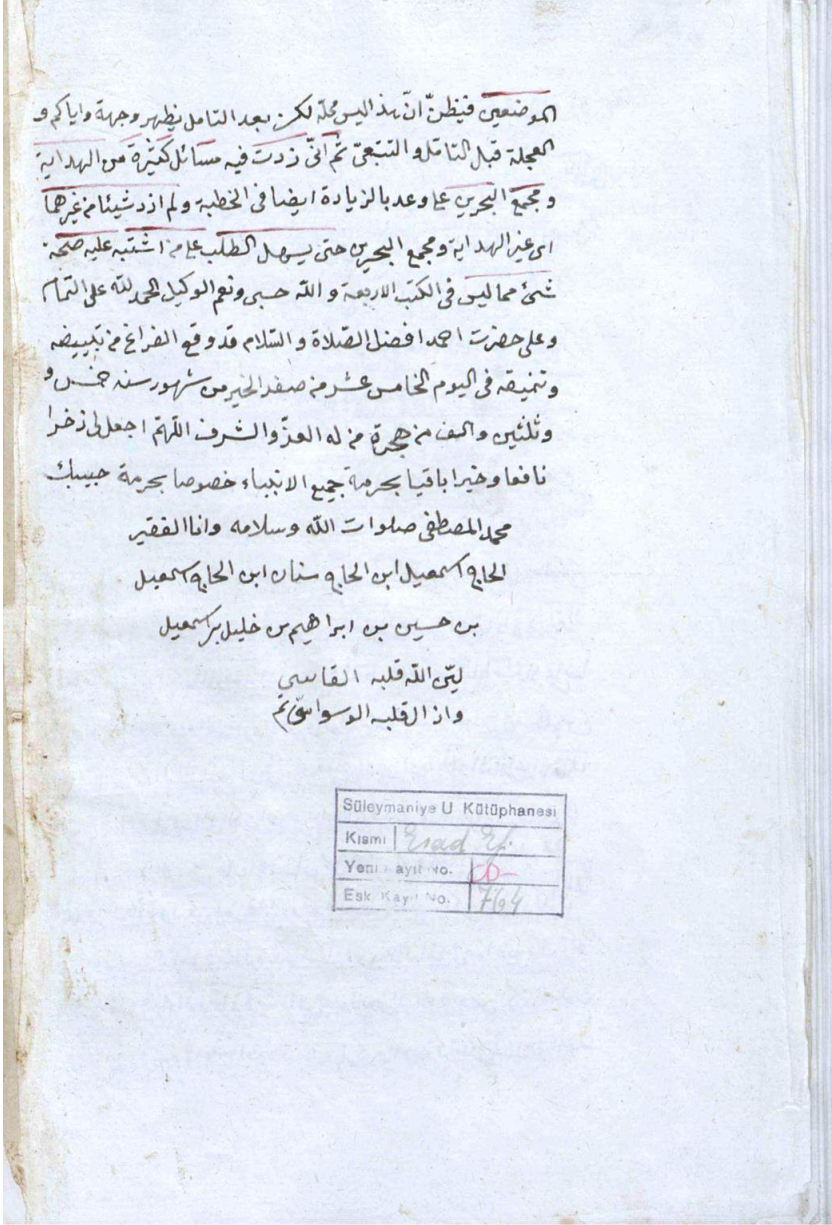 الموضعين فيظنّ انّ هذا ليس محلّه لكن بعد التامل يظهر وجهه واياكم و
العجلة قبل التأمّل والتتبّع ثم انّى زدت فيه مسائل كثيرة من الهداية
ومجمع البحرين على وعد بالزيادة ايضا فى الخطبة ولم ازد شيئا من غيرهما
اى غير الهداية ومجمع البحرين حتى يسهل الطلب على من اشتبه عليه صحّة
شئ مما ليس فى الكتب الاربعة والله حسبى ونعم الوكيل الحمد لله على التمام
وعلى حضرت احمد افضل الصّلاة والسّلام قد وقع الفراغ من تبييضه
وتنميقه فى اليوم الخامس عشر من صفر الخير من شهور سنه خمس و
وثلثين والف من هجرة من له العزّ والشرف اللهمّ اجعل لى ذخرا
نافعا وخيرا باقيا بحرمة جميع الانبياء خصوصا بحرمة حبيبك
محمد المصطفى صلوات الله وسلامه وانا الفقير
الحاج اسمعيل ابن الحاج سنان ابن الحاج اسمعيل
بن حسين بن ابراهيم بن خليل بن اسمعيل
ليّن الله قلبه القاسى
وازال قلبه الوسواسىّ تم
Süleymaniye U Kütüphanesi
Kısmı Esad Ef.
Yeni Kayıt No.
Esk. Kayıt No. 764